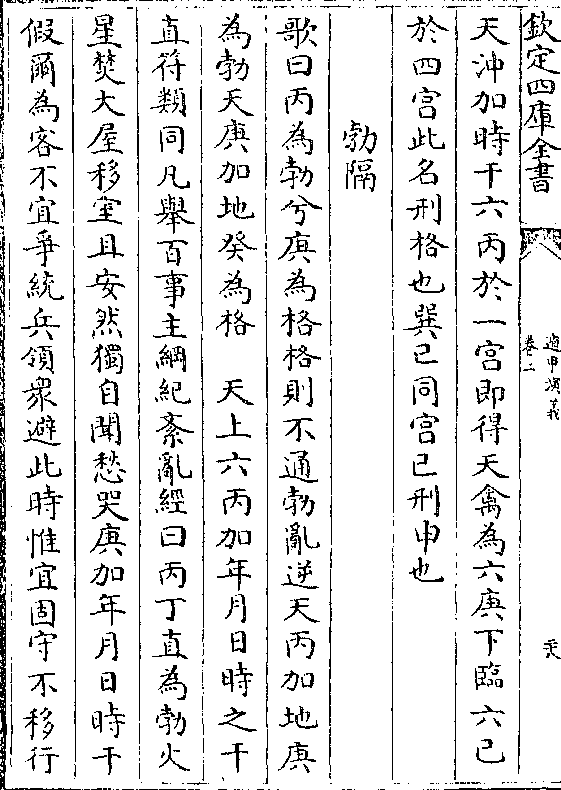 欽定四庫全書
遁甲演義
卷二
天沖加時干六丙於一宮即得天禽為六庚下臨六己
於四宮此名刑格也巽巳同宮巳刑申也
勃隔
歌曰丙為勃兮庚為格格則不通勃亂逆天丙加地庚
為勃天庚加地癸為格　天上六丙加年月日時之干
直符類同凡舉百事主綱紀紊亂經曰丙丁直為勃火
星焚大屋移室且安然獨自聞愁哭庚加年月日時干
假爾為客不宜爭統兵領衆避此時惟宜固守不移行